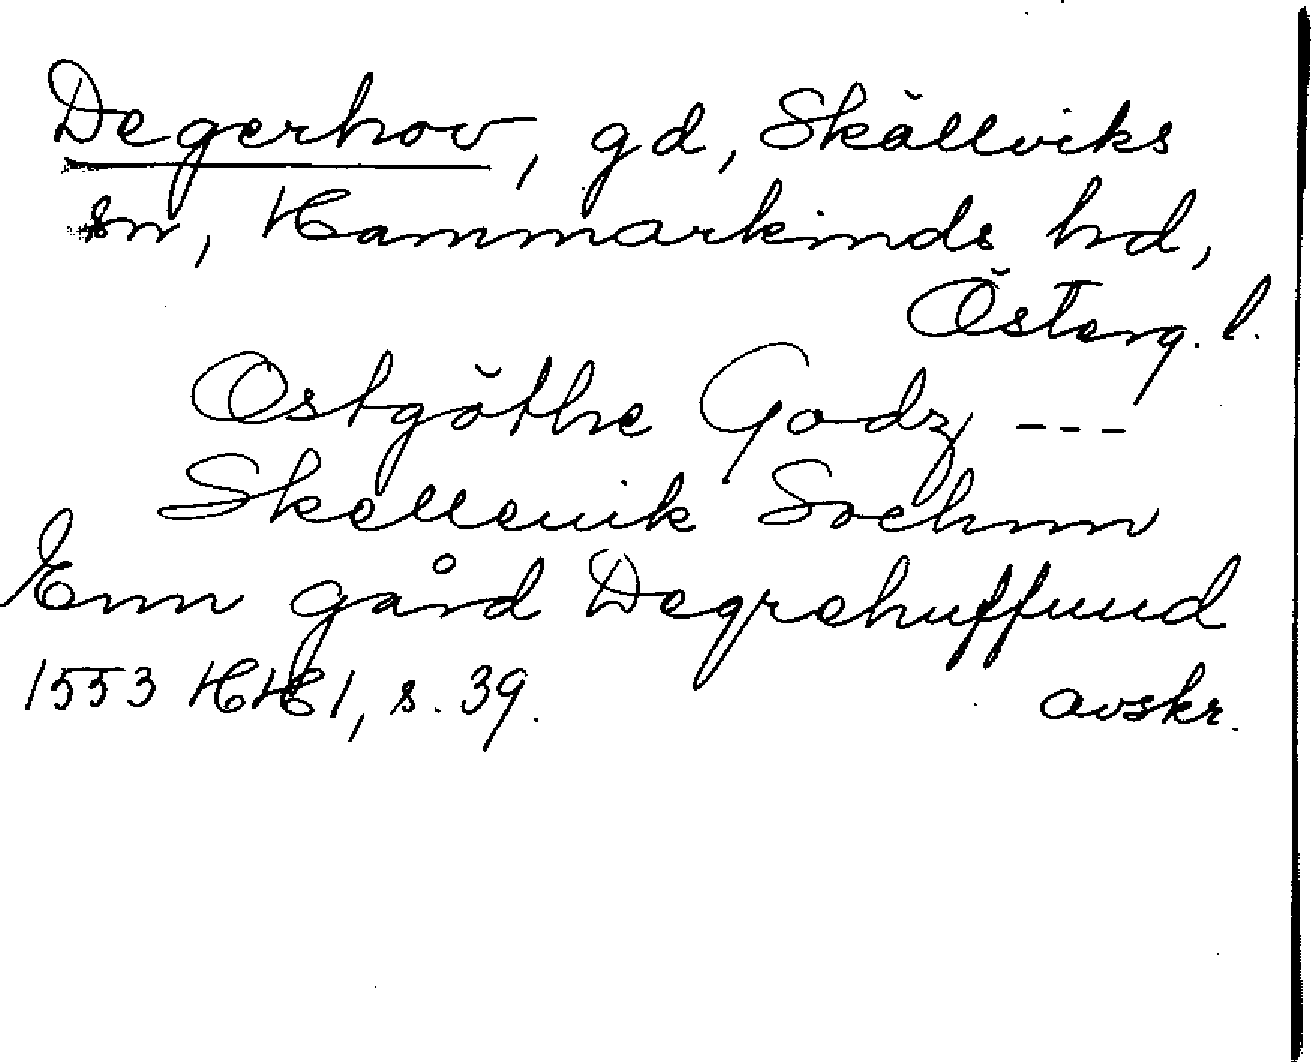 Degerhov, gd, Skällviks
sn, Hammarkinds hd,
Österg. l.
Ostgöthe Godz ---
Skelleuik Sochnn
Enn gård Degrehuffuud
1553 HH 1, s. 39. avskr.